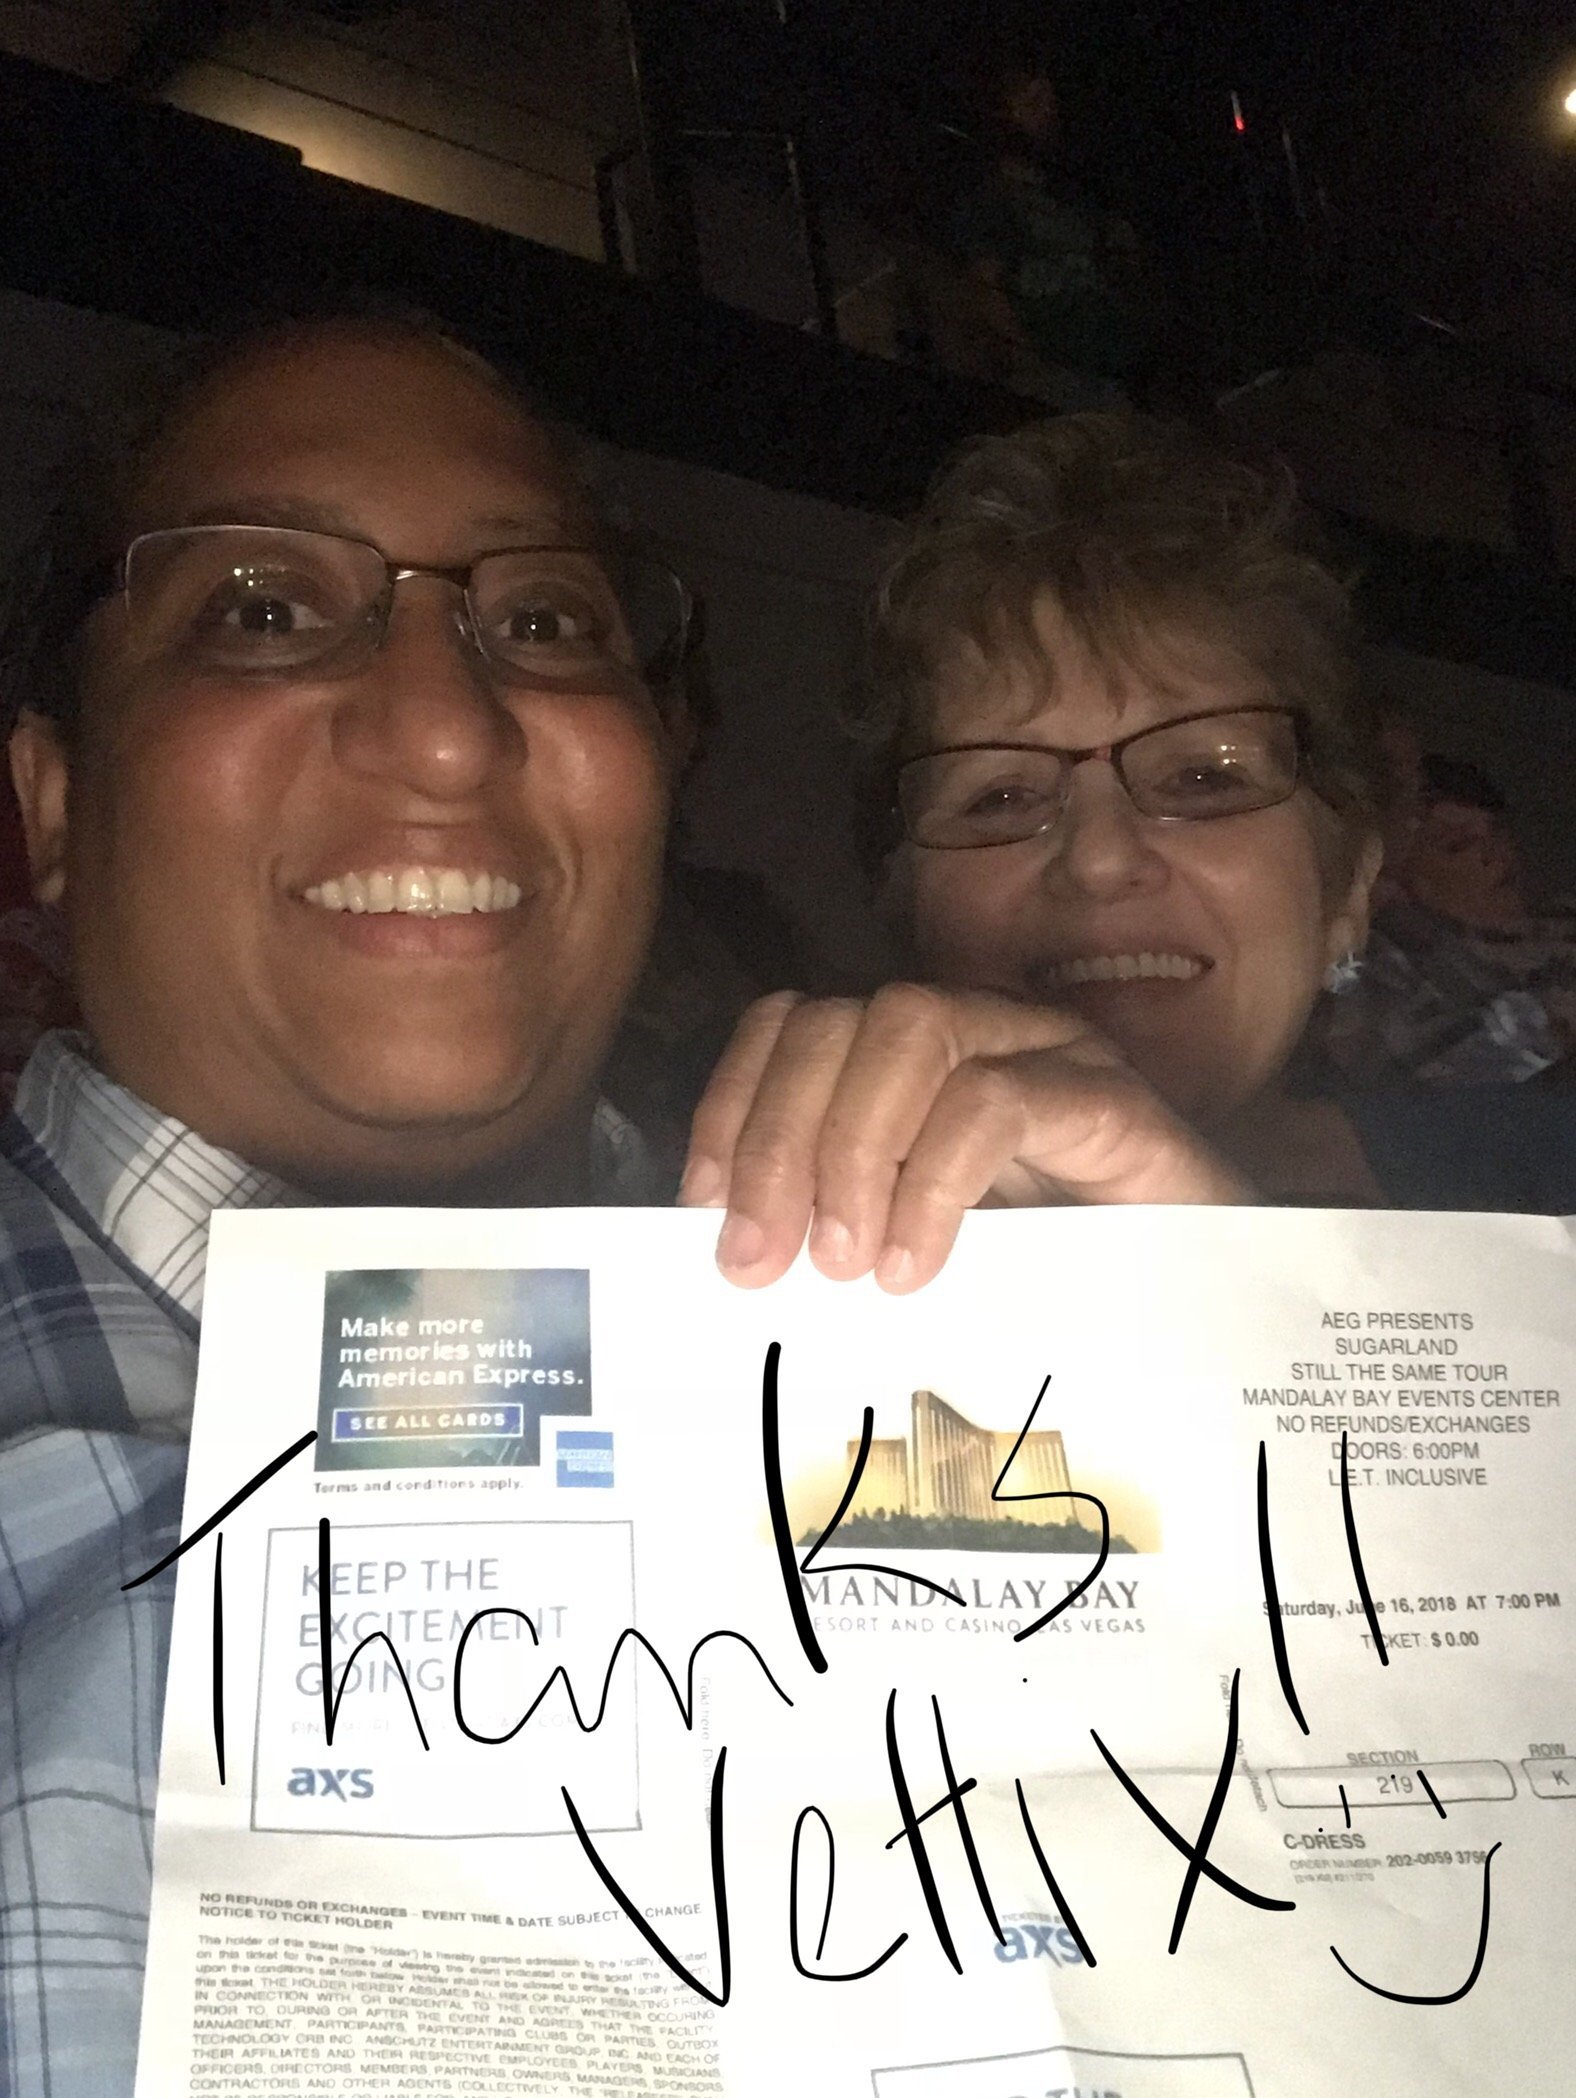 Make more
memories with
American Express.
SEE ALL CARDS
AMERICAN EXPRESS
Terms and conditions apply.
KEEP THE
EXCITEMENT
GOING
axs
MANDALAY BAY
RESORT AND CASINO, LAS VEGAS
AEG PRESENTS
SUGARLAND
STILL THE SAME TOUR
MANDALAY BAY EVENTS CENTER
NO REFUNDS/EXCHANGES
DOORS: 6:00PM
L.E.T. INCLUSIVE
Saturday, June 16, 2018 AT 7:00 PM
TICKET: $ 0.00
SECTION
219
ROW
K
C-DRESS
ORDER NUMBER 202-0059 3756
Thanks
Vettix!!
TICKETED BY
axs
NO REFUNDS OR EXCHANGES - EVENT TIME & DATE SUBJECT TO CHANGE
NOTICE TO TICKET HOLDER
The holder of this ticket (the "Holder") is hereby granted admission to the facility indicated
on this ticket for the purpose of viewing the event indicated on this ticket (the
upon the conditions set forth below. Holder shall not be allowed to enter the facility
this ticket. THE HOLDER HEREBY ASSUMES ALL RISK OF INJURY RESULTING FROM,
IN CONNECTION WITH, OR INCIDENTAL TO THE EVENT, WHETHER OCCURING
PRIOR TO, DURING OR AFTER THE EVENT AND AGREES THAT THE FACILITY
MANAGEMENT, PARTICIPANTS, PARTICIPATING CLUBS OR PARTIES, OUTBOX
TECHNOLOGY CRB INC. ANSCHUTZ ENTERTAINMENT GROUP, INC. AND EACH OF
THEIR AFFILIATES AND THEIR RESPECTIVE EMPLOYEES, PLAYERS, MUSICIANS,
OFFICERS, DIRECTORS, MEMBERS, PARTNERS, OWNERS, MANAGERS, SPONSORS
CONTRACTORS AND OTHER AGENTS (COLLECTIVELY, THE "RELEASEES")